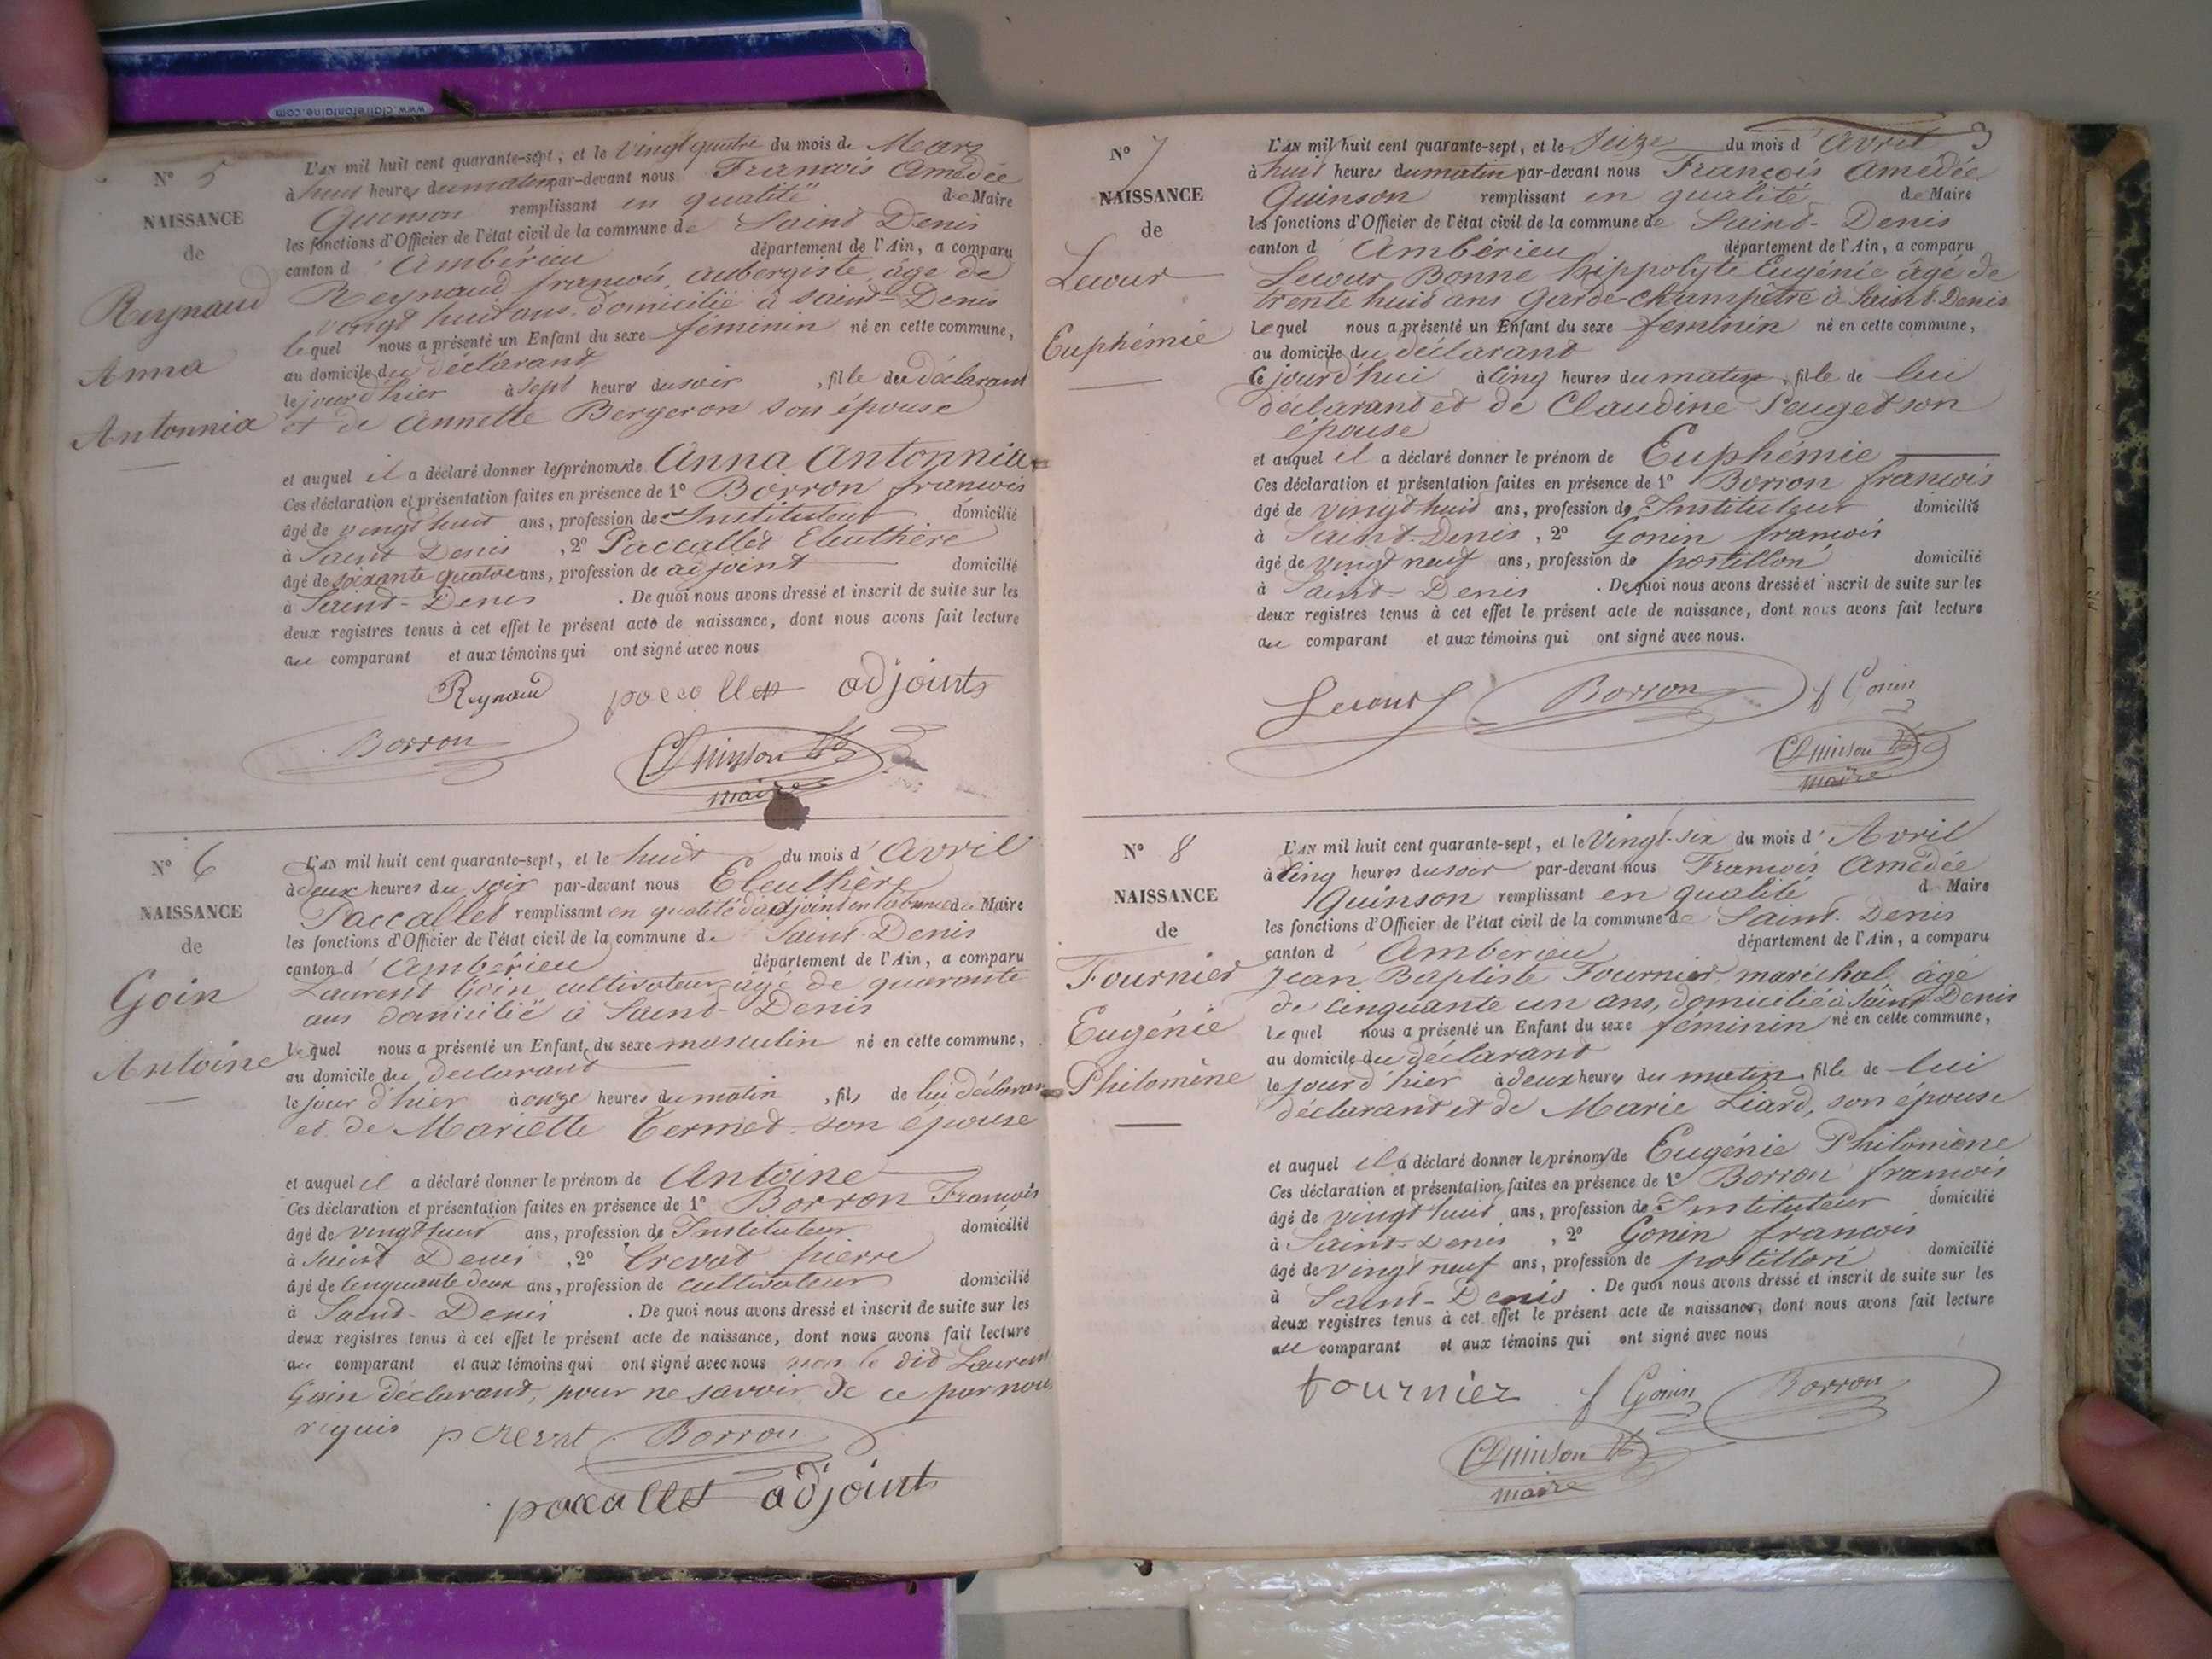 www.clairefontaine.com
N° 5
NAISSANCE
de
Reynaud
Anna
Antonnia
L'AN mil huit cent quarante-sept, et le vingt quatre du mois de Mars
à huit heures du matin par-devant nous François Amédée
Quinson remplissant en qualité de Maire
les fonctions d'Officier de l'état civil de la commune de Saint Denis
canton d' Ambérieu département de l'Ain, a comparu
Reynaud françois, aubergiste âgé de
vingt huit ans, domicilié à Saint-Denis
lequel nous a présenté un Enfant du sexe féminin né en cette commune,
au domicile du déclarant
le jour d'hier à sept heures du soir, fille du déclarant
et de Annette Bergeron son épouse
et auquel il a déclaré donner les prénoms de Anna Antonnia
Ces déclaration et présentation faites en présence de 1° Borron françois
âgé de vingt huit ans, profession de Instituteur domicilié
à Saint Denis, 2° Paccallet Eleuthère
âgé de soixante quatre ans, profession de adjoint domicilié
à Saint-Denis. De quoi nous avons dressé et inscrit de suite sur les
deux registres tenus à cet effet le présent acte de naissance, dont nous avons fait lecture
au comparant et aux témoins qui ont signé avec nous
Reynaud paccallet adjoints
Borron Quinson
maire
N° 6
NAISSANCE
de
Goin
Antoine
L'AN mil huit cent quarante-sept, et le huit du mois d' Avril
à deux heures du soir par-devant nous Eleuthère
Paccallet remplissant en qualité d'adjoint en l'absence de Maire
les fonctions d'Officier de l'état civil de la commune de Saint Denis
canton d' Ambérieu département de l'Ain, a comparu
Laurent Goin cultivateur âgé de quarante
ans domicilié à Saint-Denis
lequel nous a présenté un Enfant du sexe masculin né en cette commune,
au domicile du déclarant
le jour d'hier à onze heures du matin, fils de lui déclarant
et de Mariette Termet son épouse
et auquel il a déclaré donner le prénom de Antoine
Ces déclaration et présentation faites en présence de 1° Borron François
âgé de vingt huit ans, profession de Instituteur domicilié
à Saint Denis, 2° Crevat pierre
âgé de cinquante deux ans, profession de cultivateur domicilié
à Saint-Denis. De quoi nous avons dressé et inscrit de suite sur les
deux registres tenus à cet effet le présent acte de naissance, dont nous avons fait lecture
au comparant et aux témoins qui ont signé avec nous non le dit Laurent
Goin déclarant, pour ne savoir de ce par nous
requis p crevat Borron
paccallet adjoints
3
N° 7
NAISSANCE
de
Lecour
Euphémie
L'AN mil huit cent quarante-sept, et le Seize du mois d' Avril
à huit heures du matin par-devant nous François Amédée
Quinson remplissant en qualité de Maire
les fonctions d'Officier de l'état civil de la commune de Saint-Denis
canton d' Ambérieu département de l'Ain, a comparu
Lecour Bonne hippolyte Eugénie âgé de
trente huit ans Garde-champêtre à Saint-Denis
lequel nous a présenté un Enfant du sexe féminin né en cette commune,
au domicile du déclarant
Ce jourd'hui à cinq heures du matin, fille de lui
déclarant et de Claudine Pauget son
épouse
et auquel il a déclaré donner le prénom de Euphémie
Ces déclaration et présentation faites en présence de 1° Borron françois
âgé de vingt huit ans, profession de Instituteur domicilié
à Saint-Denis, 2° Gonin françois
âgé de vingt neuf ans, profession de postillon domicilié
à Saint-Denis. De quoi nous avons dressé et inscrit de suite sur les
deux registres tenus à cet effet le présent acte de naissance, dont nous avons fait lecture
au comparant et aux témoins qui ont signé avec nous.
Lecour Borron f Gonin
Quinson
maire
N° 8
NAISSANCE
de
Fournier
Eugénie
Philomène
L'AN mil huit cent quarante-sept, et le Vingt-six du mois d' Avril
à cinq heures du soir par-devant nous François Amédée
Quinson remplissant en qualité d Maire
les fonctions d'Officier de l'état civil de la commune de Saint-Denis
canton d' Amberieu département de l'Ain, a comparu
Jean Baptiste Fournier, maréchal, âgé
de cinquante un ans, domicilié à Saint Denis
lequel nous a présenté un Enfant du sexe féminin né en cette commune,
au domicile du déclarant
le jour d'hier à deux heures du matin, fille de lui
déclarant et de Marie Liard, son épouse
et auquel il a déclaré donner les prénoms de Eugénie Philomène
Ces déclaration et présentation faites en présence de 1° Borron françois
âgé de vingt huit ans, profession de Instituteur domicilié
à Saint-Denis, 2° Gonin françois
âgé de vingt neuf ans, profession de postillon domicilié
à Saint-Denis. De quoi nous avons dressé et inscrit de suite sur les
deux registres tenus à cet effet le présent acte de naissance, dont nous avons fait lecture
au comparant et aux témoins qui ont signé avec nous
fournier f Gonin Borron
Quinson
maire